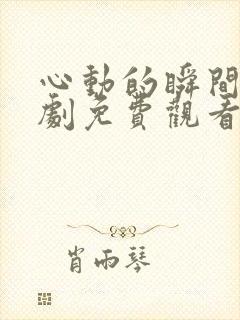 心動的瞬間
劇免費觀看
肖雨琴